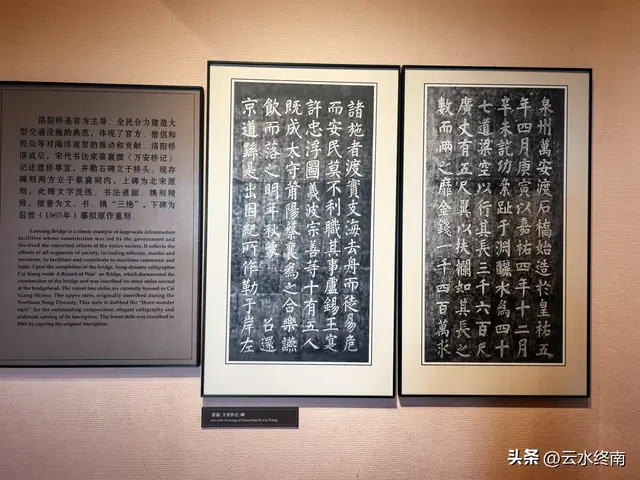 洛阳桥是官方主导、全民合力建造大
型交通设施的典范,体现了官方、僧侣和
民众等对海洋商贸的推动和贡献。洛阳桥
落成后,宋代书法家蔡襄撰《万安桥记》
记述建桥事宜,并勒石碑立于桥头。现存
碑刻两方立于蔡襄祠内,上碑为北宋原
制,此碑文字洗练、书法遒丽、镌刻精
致,被誉为文、书、镌“三绝”,下碑为
后世(1965年)摹拟原作重刻。
Luoyang Bridge is a classic example of large-scale infrastructure
facilities whose construction was led by the government and
involved the concerted efforts of the entire society. It reflects the
efforts of all segments of society, including officials, monks and
residents, to facilitate and contribute to maritime commerce and
trade. Upon the completion of the bridge, Song-dynasty calligrapher
Cai Xiang wrote A Record of Wan'an Bridge, which documented the
construction of the bridge and was inscribed on stone steles erected
at the bridgehead. The extant two steles are currently housed in Cai
Xiang Shrine. The upper stele, originally inscribed during the
Northern Song Dynasty, This stele is dubbed the "three-wonder
stele" for the outstanding composition, elegant calligraphy and
elaborate carving of its inscription. The lower stele was inscribed in
1965 by copying the original inscription.
泉州萬安渡石橋始造於皇祐五
年四月庚寅以嘉祐四年十二月
辛未訖功絫趾于渊釃水為四十
七道梁空以行其長三千六百尺
廣丈有五尺翼以扶欄如其長之
數而兩之靡金錢一千四百萬求
諸施者渡實支海去舟而徒易危
而安民莫不利職其事盧錫王寔
許忠浮圖義波宗善等十有五人
既成太守莆陽蔡襄為之合樂讌
飲而落之明年秋蒙 召還
京道繇是出因紀所作勒于岸左
蔡襄《万安桥记》碑
头条 @云水终南